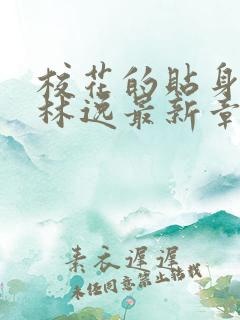 校花的贴身
林逸最新章
素衣遲遲
未经同意禁止转载